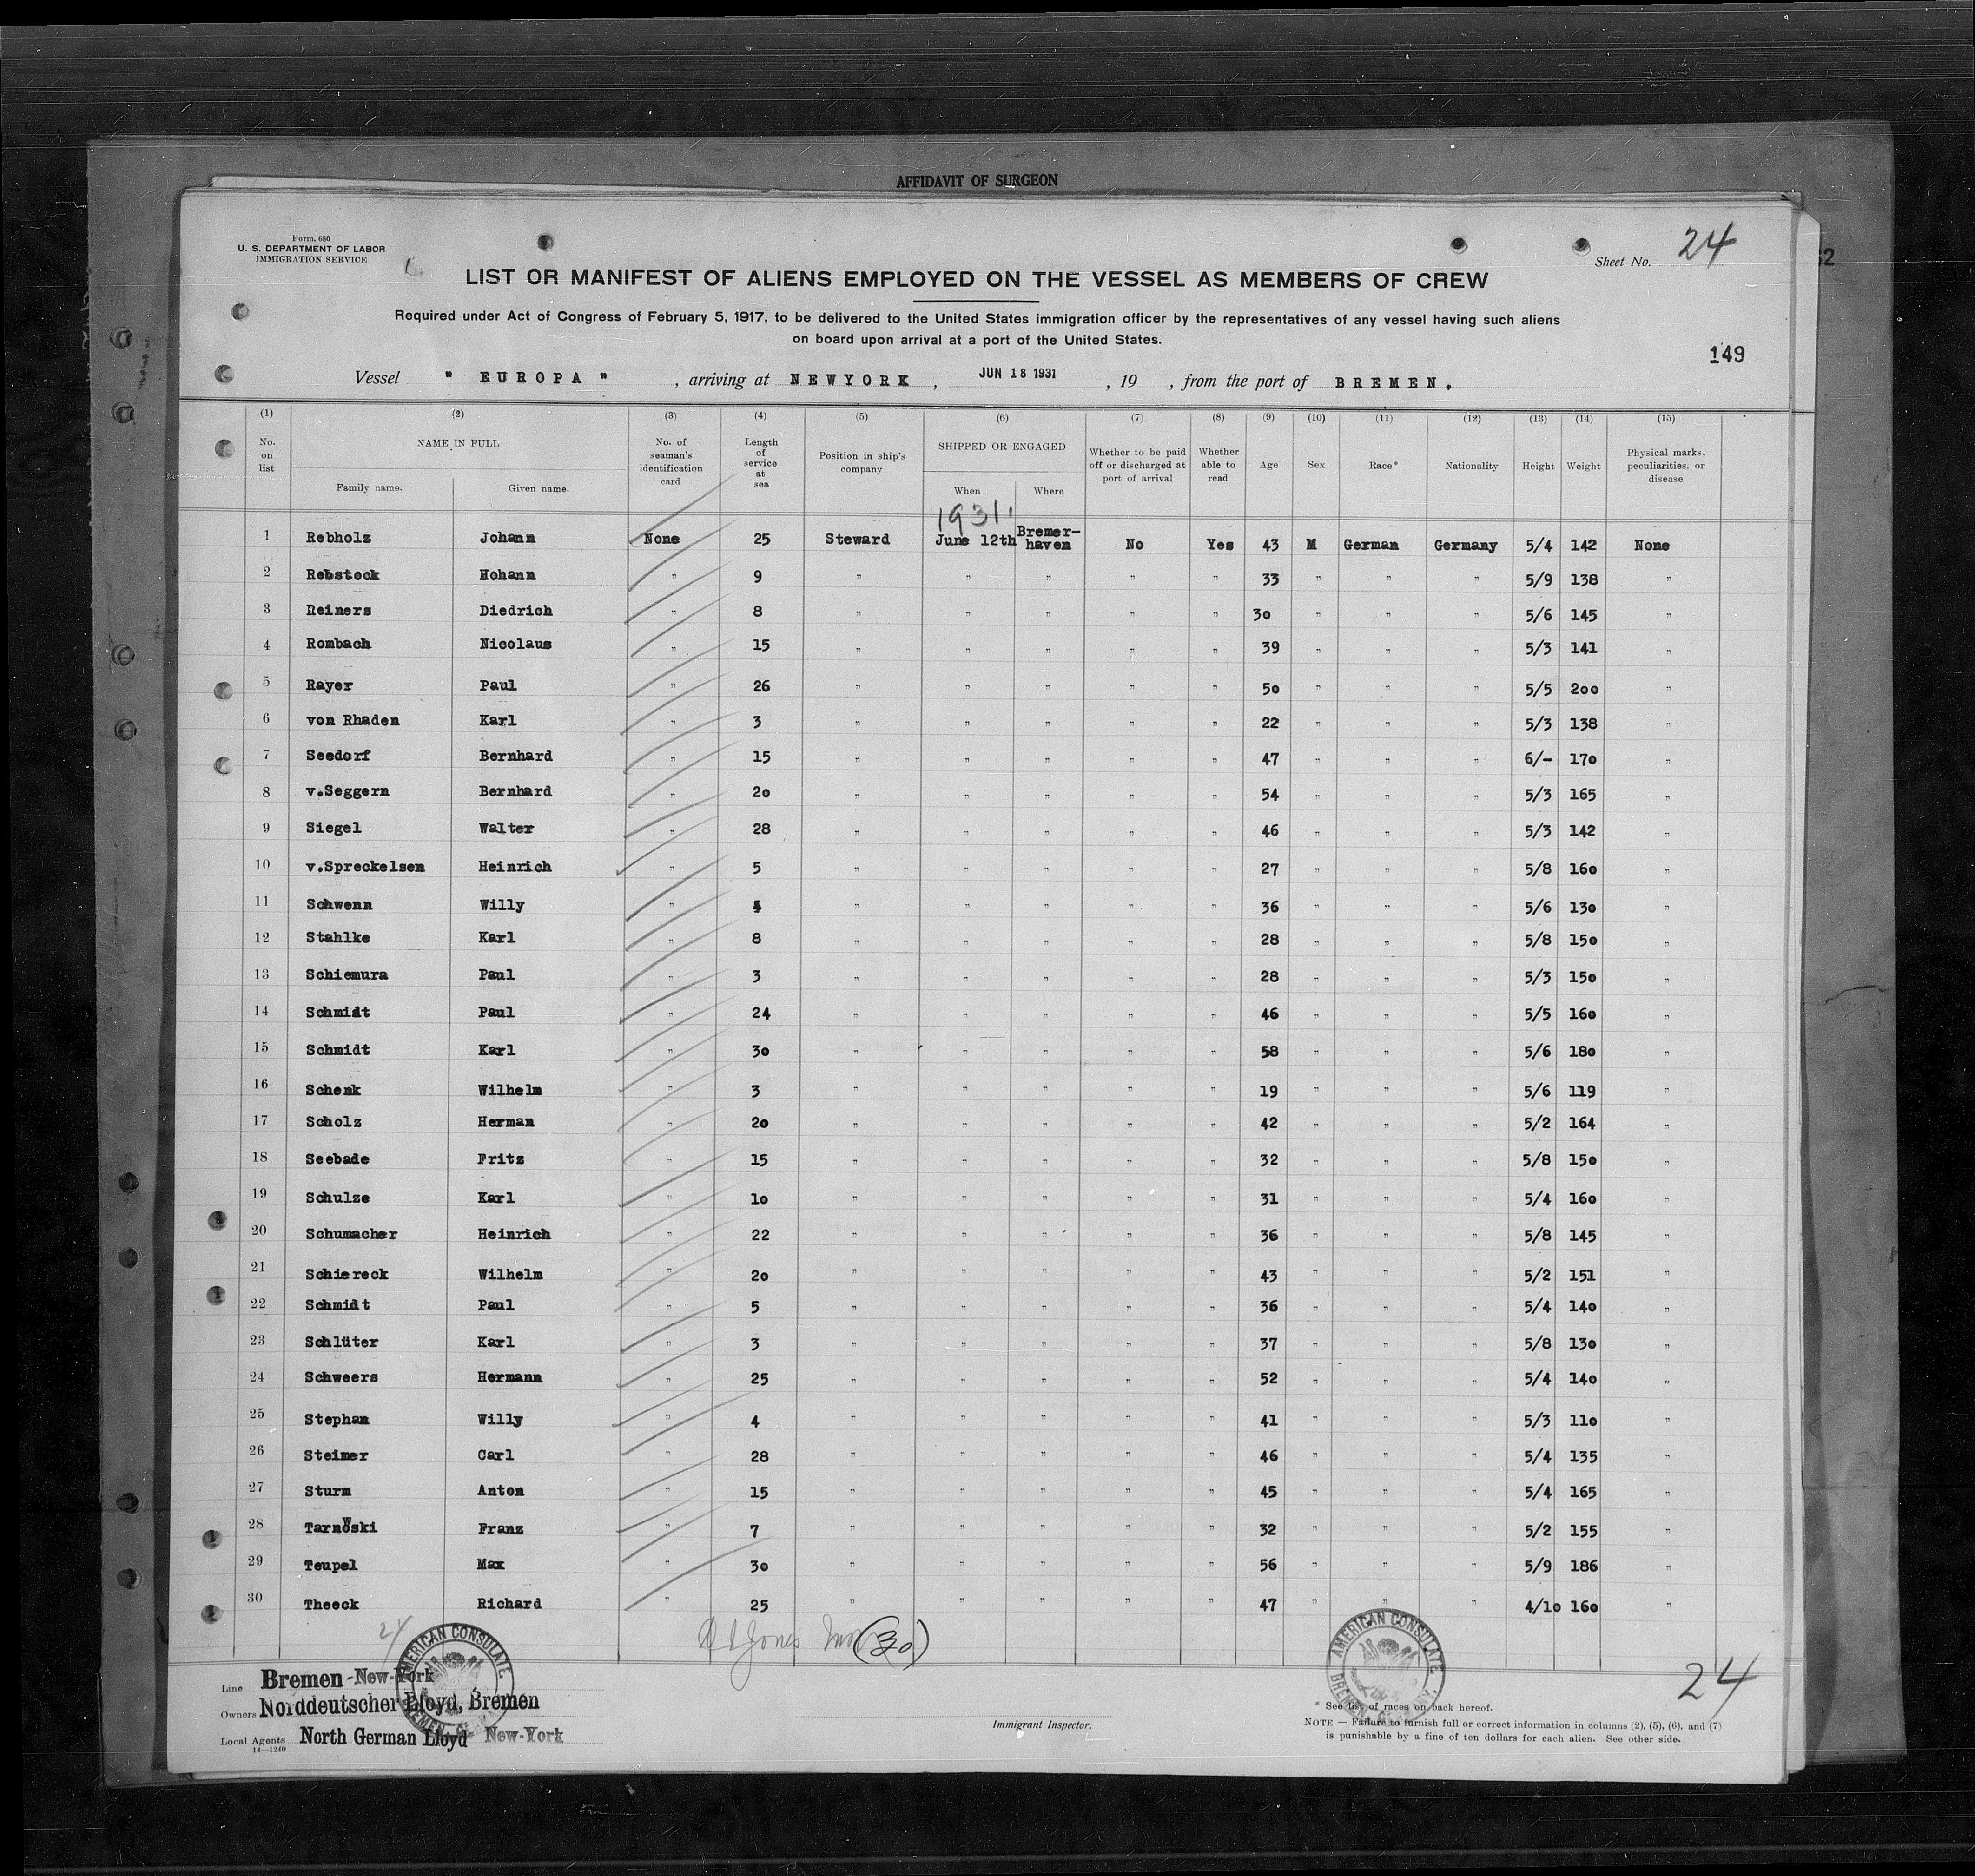 AFFIDAVIT OF SURGEON
Form. 680
U. S. DEPARTMENT OF LABOR
IMMIGRATION SERVICE
Sheet No. 24
LIST OR MANIFEST OF ALIENS EMPLOYED ON THE VESSEL AS MEMBERS OF CREW
Required under Act of Congress of February 5, 1917, to be delivered to the United States immigration officer by the representatives of any vessel having such aliens
on board upon arrival at a port of the United States.
149
Vessel " EUROPA " , arriving at NEWYORK , JUN 18 1931 , 19 , from the port of BREMEN.
(1) (2) (3) (4) (5) (6) (7) (8) (9) (10) (11) (12) (13) (14) (15)
No. on list NAME IN FULL Family name. Given name. No. of seaman's identification card Length of service at sea Position in ship's company SHIPPED OR ENGAGED When Where Whether to be paid off or discharged at port of arrival Whether able to read Age Sex Race* Nationality Height Weight Physical marks, peculiarities, or disease
1931
1 Rebholz Johann None 25 Steward June 12th Bremer-haven No Yes 43 M German Germany 5/4 142 None
2 Rebstock Hohann " 9 " " " " " 33 " " " 5/9 138 "
3 Reiners Diedrich " 8 " " " " " 30 " " " 5/6 145 "
4 Rombach Nicolaus " 15 " " " " " 39 " " " 5/3 141 "
5 Rayer Paul " 26 " " " " " 50 " " " 5/5 200 "
6 von Rhaden Karl " 3 " " " " " 22 " " " 5/3 138 "
7 Seedorf Bernhard " 15 " " " " " 47 " " " 6/- 170 "
8 v.Seggern Bernhard " 20 " " " " " 54 " " " 5/3 165 "
9 Siegel Walter " 28 " " " " " 46 " " " 5/3 142 "
10 v.Spreckelsen Heinrich " 5 " " " " " 27 " " " 5/8 160 "
11 Schwenn Willy " " " " " " 36 " " " 5/6 130 "
12 Stahlke Karl " 8 " " " " " 28 " " " 5/8 150 "
13 Schiemura Paul " 3 " " " " " 28 " " " 5/3 150 "
14 Schmidt Paul " 24 " " " " " 46 " " " 5/5 160 "
15 Schmidt Karl " 30 " " " " " 58 " " " 5/6 180 "
16 Schenk Wilhelm " 3 " " " " " 19 " " " 5/6 119 "
17 Scholz Herman " 20 " " " " " 42 " " " 5/2 164 "
18 Seebade Fritz " 15 " " " " " 32 " " " 5/8 150 "
19 Schulze Karl " 10 " " " " " 31 " " " 5/4 160 "
20 Schumacher Heinrich " 22 " " " " " 36 " " " 5/8 145 "
21 Schiereck Wilhelm " 20 " " " " " 43 " " " 5/2 151 "
22 Schmidt Paul " 5 " " " " " 36 " " " 5/4 140 "
23 Schlüter Karl " 3 " " " " " 37 " " " 5/8 130 "
24 Schweers Hermann " 25 " " " " " 52 " " " 5/4 140 "
25 Stephan Willy " 4 " " " " " 41 " " " 5/3 110 "
26 Steimer Carl " 28 " " " " " 46 " " " 5/4 135 "
27 Sturm Anton " 15 " " " " " 45 " " " 5/4 165 "
28 Tarnowski Franz " 7 " " " " " 32 " " " 5/2 155 "
29 Teupel Max " 30 " " " " " 56 " " " 5/9 186 "
30 Theeck Richard " 25 " " " " " 47 " " " 4/10 160 "
24
Jones (30)
AMERICAN CONSULATE
BREMEN
AMERICAN CONSULATE
BREMEN
24
Line Bremen - New-York
Owners Norddeutscher Lloyd, Bremen
Local Agents North German Lloyd New-York
14—1240
Immigrant Inspector.
* See list of races on back hereof.
NOTE — Failure to furnish full or correct information in columns (2), (5), (6), and (7)
is punishable by a fine of ten dollars for each alien. See other side.